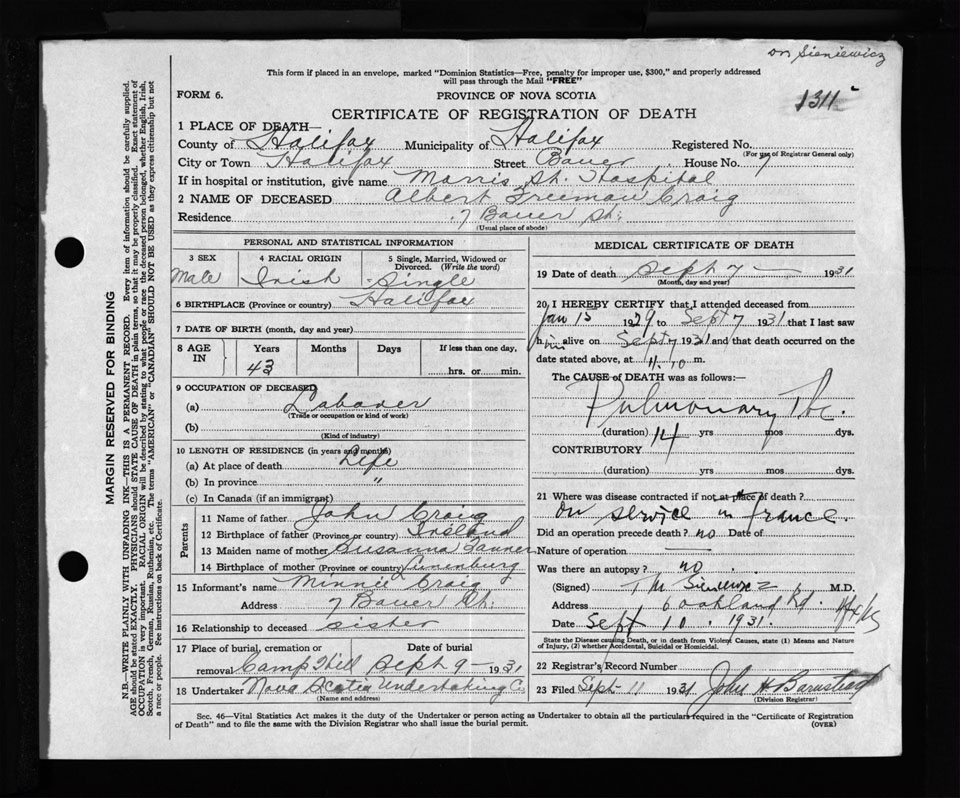 Dr Sieniewicz
This form if placed in an envelope, marked "Dominion Statistics—Free, penalty for improper use, $300," and properly addressed
will pass through the Mail "FREE"
FORM 6.
PROVINCE OF NOVA SCOTIA
1311
CERTIFICATE OF REGISTRATION OF DEATH
1 PLACE OF DEATH—
County of Halifax Municipality of Halifax Registered No.
(For use of Registrar General only)
City or Town Halifax Street Bauer House No. 7
If in hospital or institution, give name Morris St. Hospital
2 NAME OF DECEASED Albert Freeman Craig
Residence 7 Bauer St.
(Usual place of abode)
PERSONAL AND STATISTICAL INFORMATION
3 SEX
Male
4 RACIAL ORIGIN
Irish
5 Single, Married, Widowed or
Divorced. (Write the word)
Single
6 BIRTHPLACE (Province or country) Halifax
7 DATE OF BIRTH (month, day and year)
8 AGE
IN
Years
43
Months
Days
If less than one day,
hrs. or min.
9 OCCUPATION OF DECEASED
(a) Laborer
(Trade or occupation or kind of work)
(b)
(Kind of industry)
10 LENGTH OF RESIDENCE (in years and months)
(a) At place of death Life
(b) In province "
(c) In Canada (if an immigrant)
Parents
11 Name of father John Craig
12 Birthplace of father (Province or country) Ireland
13 Maiden name of mother Susanna Tanner
14 Birthplace of mother (Province or country) Lunenburg
15 Informant's name Minnie Craig
Address 7 Bauer St.
16 Relationship to deceased sister
17 Place of burial, cremation or Date of burial
removal Camp Hill Sept 9 - 1931
18 Undertaker Nova Scotia Undertaking Co.
(Name and address)
MEDICAL CERTIFICATE OF DEATH
19 Date of death Sept 7 — 1931
(Month, day and year)
20 I HEREBY CERTIFY that I attended deceased from
Jan 15 1929 to Sept 7 1931 that I last saw
him alive on Sept 7 1931 and that death occurred on the
date stated above, at 11.10 m.
The CAUSE of DEATH was as follows:
Pulmonary Tbc.
(duration) 14 yrs mos dys.
CONTRIBUTORY
(duration) yrs mos dys.
21 Where was disease contracted if not at place of death?
on service in france.
Did an operation precede death? no Date of
Nature of operation —
Was there an autopsy? no.
(Signed) T M Sieniewicz M.D.
Address 6 Oakland Rd. Hfx NS
Date Sept 10. 1931.
State the Disease causing Death, or in death from Violent Causes, state (1) Means and Nature
of Injury, (2) whether Accidental, Suicidal or Homicidal.
22 Registrar's Record Number
23 Filed Sept 11 1931 John H Barnstead
(Division Registrar)
Sec. 46—Vital Statistics Act makes it the duty of the Undertaker or person acting as Undertaker to obtain all the particulars required in the "Certificate of Registration
of Death" and to file the same with the Division Registrar who shall issue the burial permit.
(OVER)
MARGIN RESERVED FOR BINDING
N.B.—WRITE PLAINLY WITH UNFADING INK—THIS IS A PERMANENT RECORD. Every item of information should be carefully supplied.
AGE should be stated EXACTLY. PHYSICIANS should STATE CAUSE OF DEATH in plain terms, so that it may be properly classified. Exact statement of
OCCUPATION is very important. RACIAL ORIGIN will be described by stating to what people or race the deceased person belonged, whether English, Irish,
Scotch, French, German, Russian, Ruthenian, etc. The terms "AMERICAN" or "CANADIAN" SHOULD NOT BE USED as they express citizenship but not
a race or people. See instructions on back of Certificate.